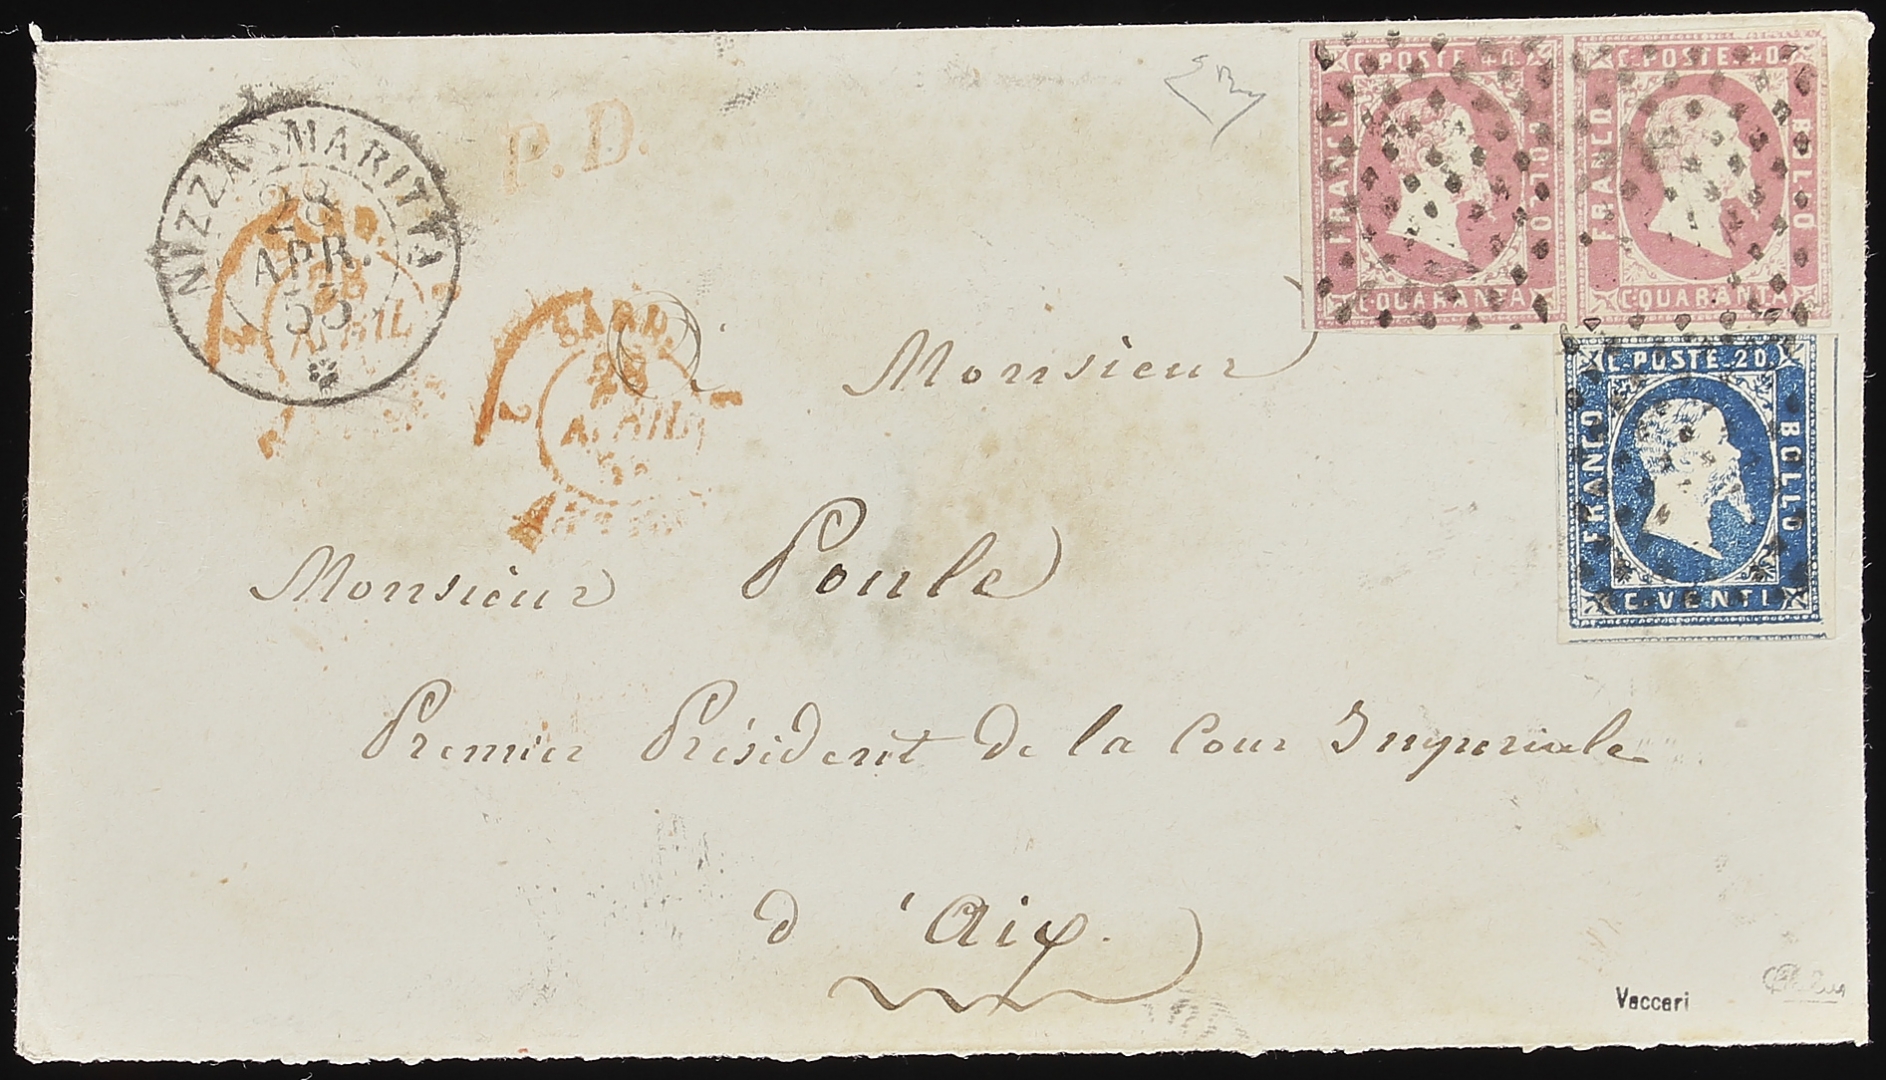 NIZZA MARITTA
28
APR.
53
P.D.
SARD.
28
AVRIL
C. POSTE. 40.
FRANCO
BOLLO
C. QUARANTA
C. POSTE. 40
FRANCO
BOLLO
C. QUARANTA
C. POSTE. 20
FRANCO
BOLLO
C. VENTI
Monsieur
Monsieur Poule
Premier Président de la Cour Imperiale
d'Aix.
Vaccari